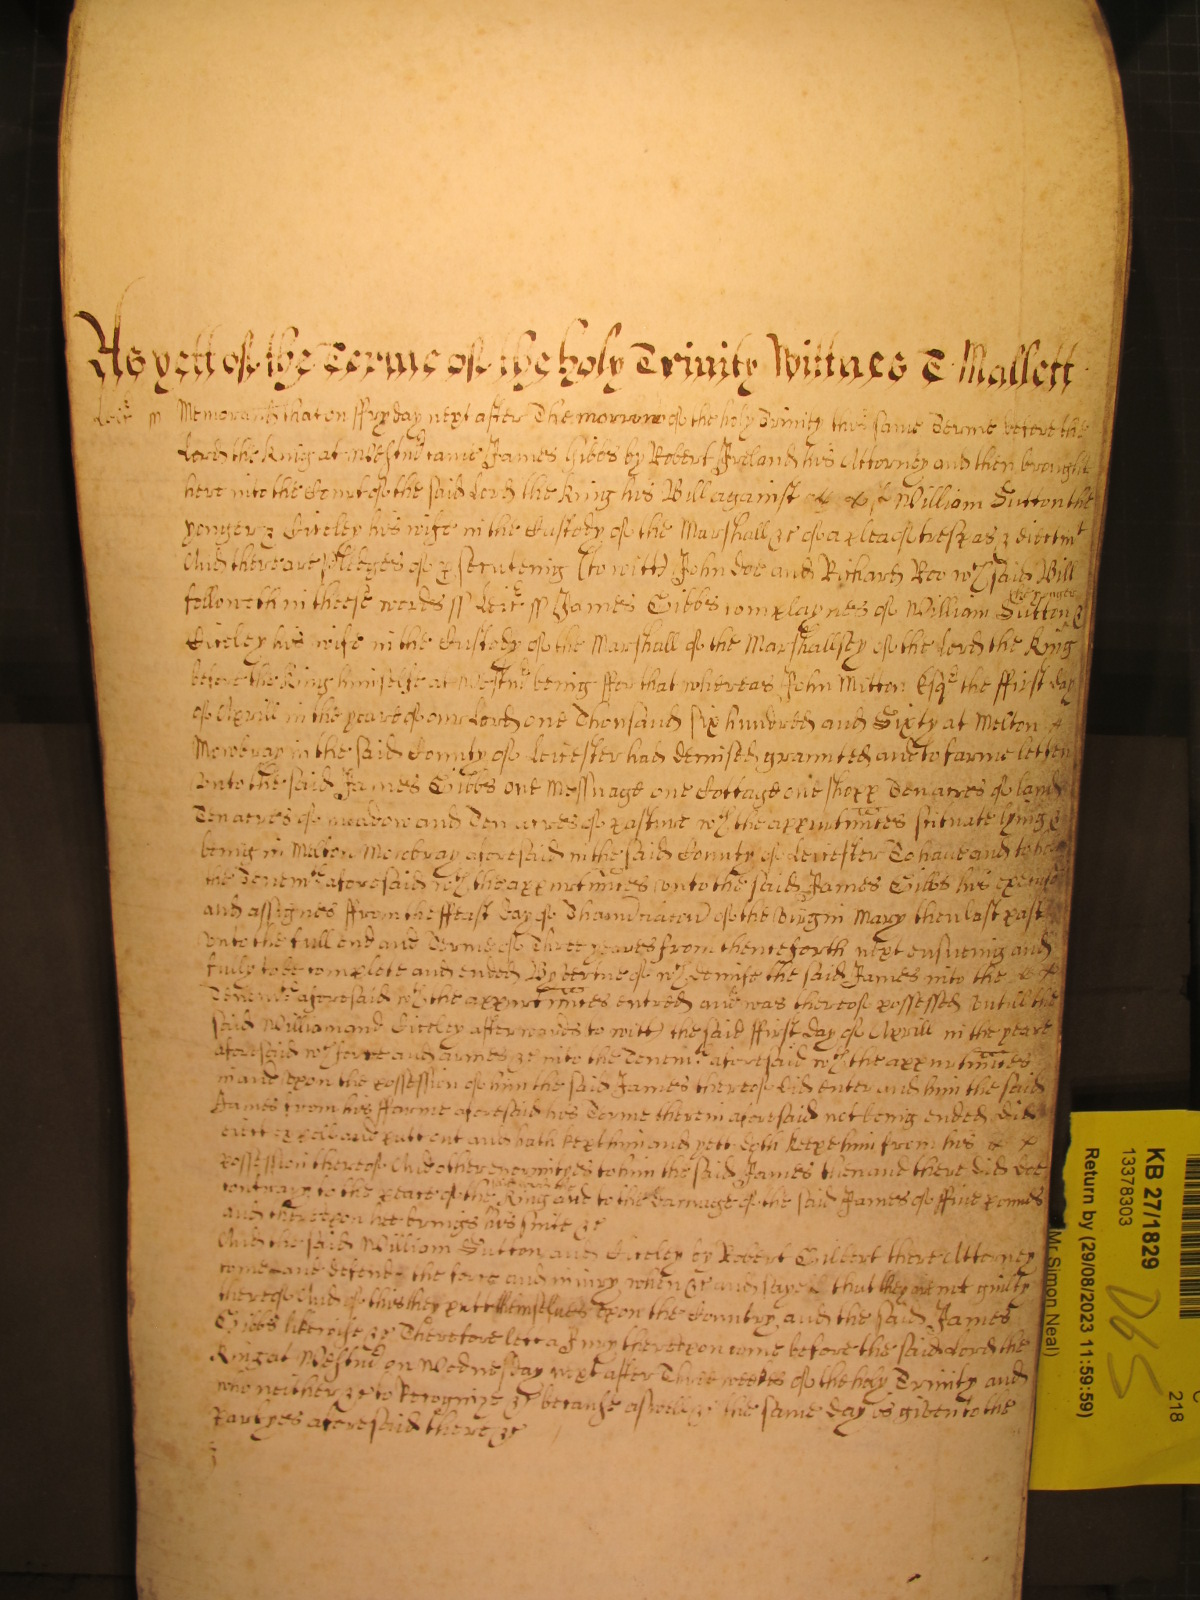 As yett of the Terme of the holy Trinity Wittnes T Mallett
Leic̄ ss Memorand that on ffryday next after The morrow of the holy Trinity this same Terme before the
Lord the King at Westm̄ came James Gibbs by Robert Ireland his Attorney and then brought
here into the Court of the said Lord the King his Bill against William Sutton the
yonger & Ciceley his wife in the Custody of the Marshall &c of a plea of trespas & Eiectmt
And there are pledges of p̱secuteing (to witt) John Doe and Richard Roo wch said Bill
followeth in theese words ss Leic̄ ss James Gibbs complaynes of William Sutton the yonger &
Ciceley his wife in the Custody of the Marshall of the Marshallsey of the Lord the King
before the King himselfe at Westm̄ being ffor that whereas John Mitton Esqr the ffirst day
of Aprill in the yeare of our Lord one Thousand six hundred and Sixty at Melton
Mowbray in the said County of Leicester had demised graunted and to farme letten
vnto the said James Gibbs one Messuage one Cottage one shopp Ten acres of land
Ten acres of meadow and Ten acres of pasture wth the appurtnnces scituate lying &
being in Melton Mowbray aforesaid in the said County of Leicester To haue and to hold
the Tenemts aforesaid wth the appurtnnces vnto the said James Gibbs his
and assignes ffrom the ffeast day of Thannūciacoñ of the Virgin Mary then last past
vnto the full end and Terme of Three yeares from thenceforth next ensueing and
fully to be complete and ended By vertue of wch demise the said James into the
Tenemts aforesaid wth the appurtnnces entred and was thereof possessed vntill the
said William and Ciceley afterwards to witt the said ffirst day of Aprill in the yeare
aforesaid wth force and armes &c into the Tenemts aforesaid wth the appurtnnces
in and vpon the possession of him the said James thereof did enter and him the said
James from his ffarme aforesaid his Terme therein aforesaid not being ended did
eiect expell and putt out and hath kept him and yett doth keepe him from his
possession thereof And other enormityes to him the said James then and there did doe
contrary to the peace of the King and to the damage of the said James of ffiue pounds
and therevpon hee brings his suite &c
And the said William Sutton and Ciceley by Robert Gilbert there Attorney
come and defend the force and iniury when &c and saye that they are not guilty
thereof And of this they putt themselues vpon the Country and the said James
Gibbs likewise &c Therefore lett a Jury therevpon come before the said Lord the
King at Westm̄ on Wednesday next after Three weekes of the holy Trinity and
who neither &c to Recognize &c because aswell &c the same day is given to the
Partyes aforesaid there &c
KB 27/1829
13378303
Return by (29/08/2023 11:59:59)
Mr Simon Neal)
218